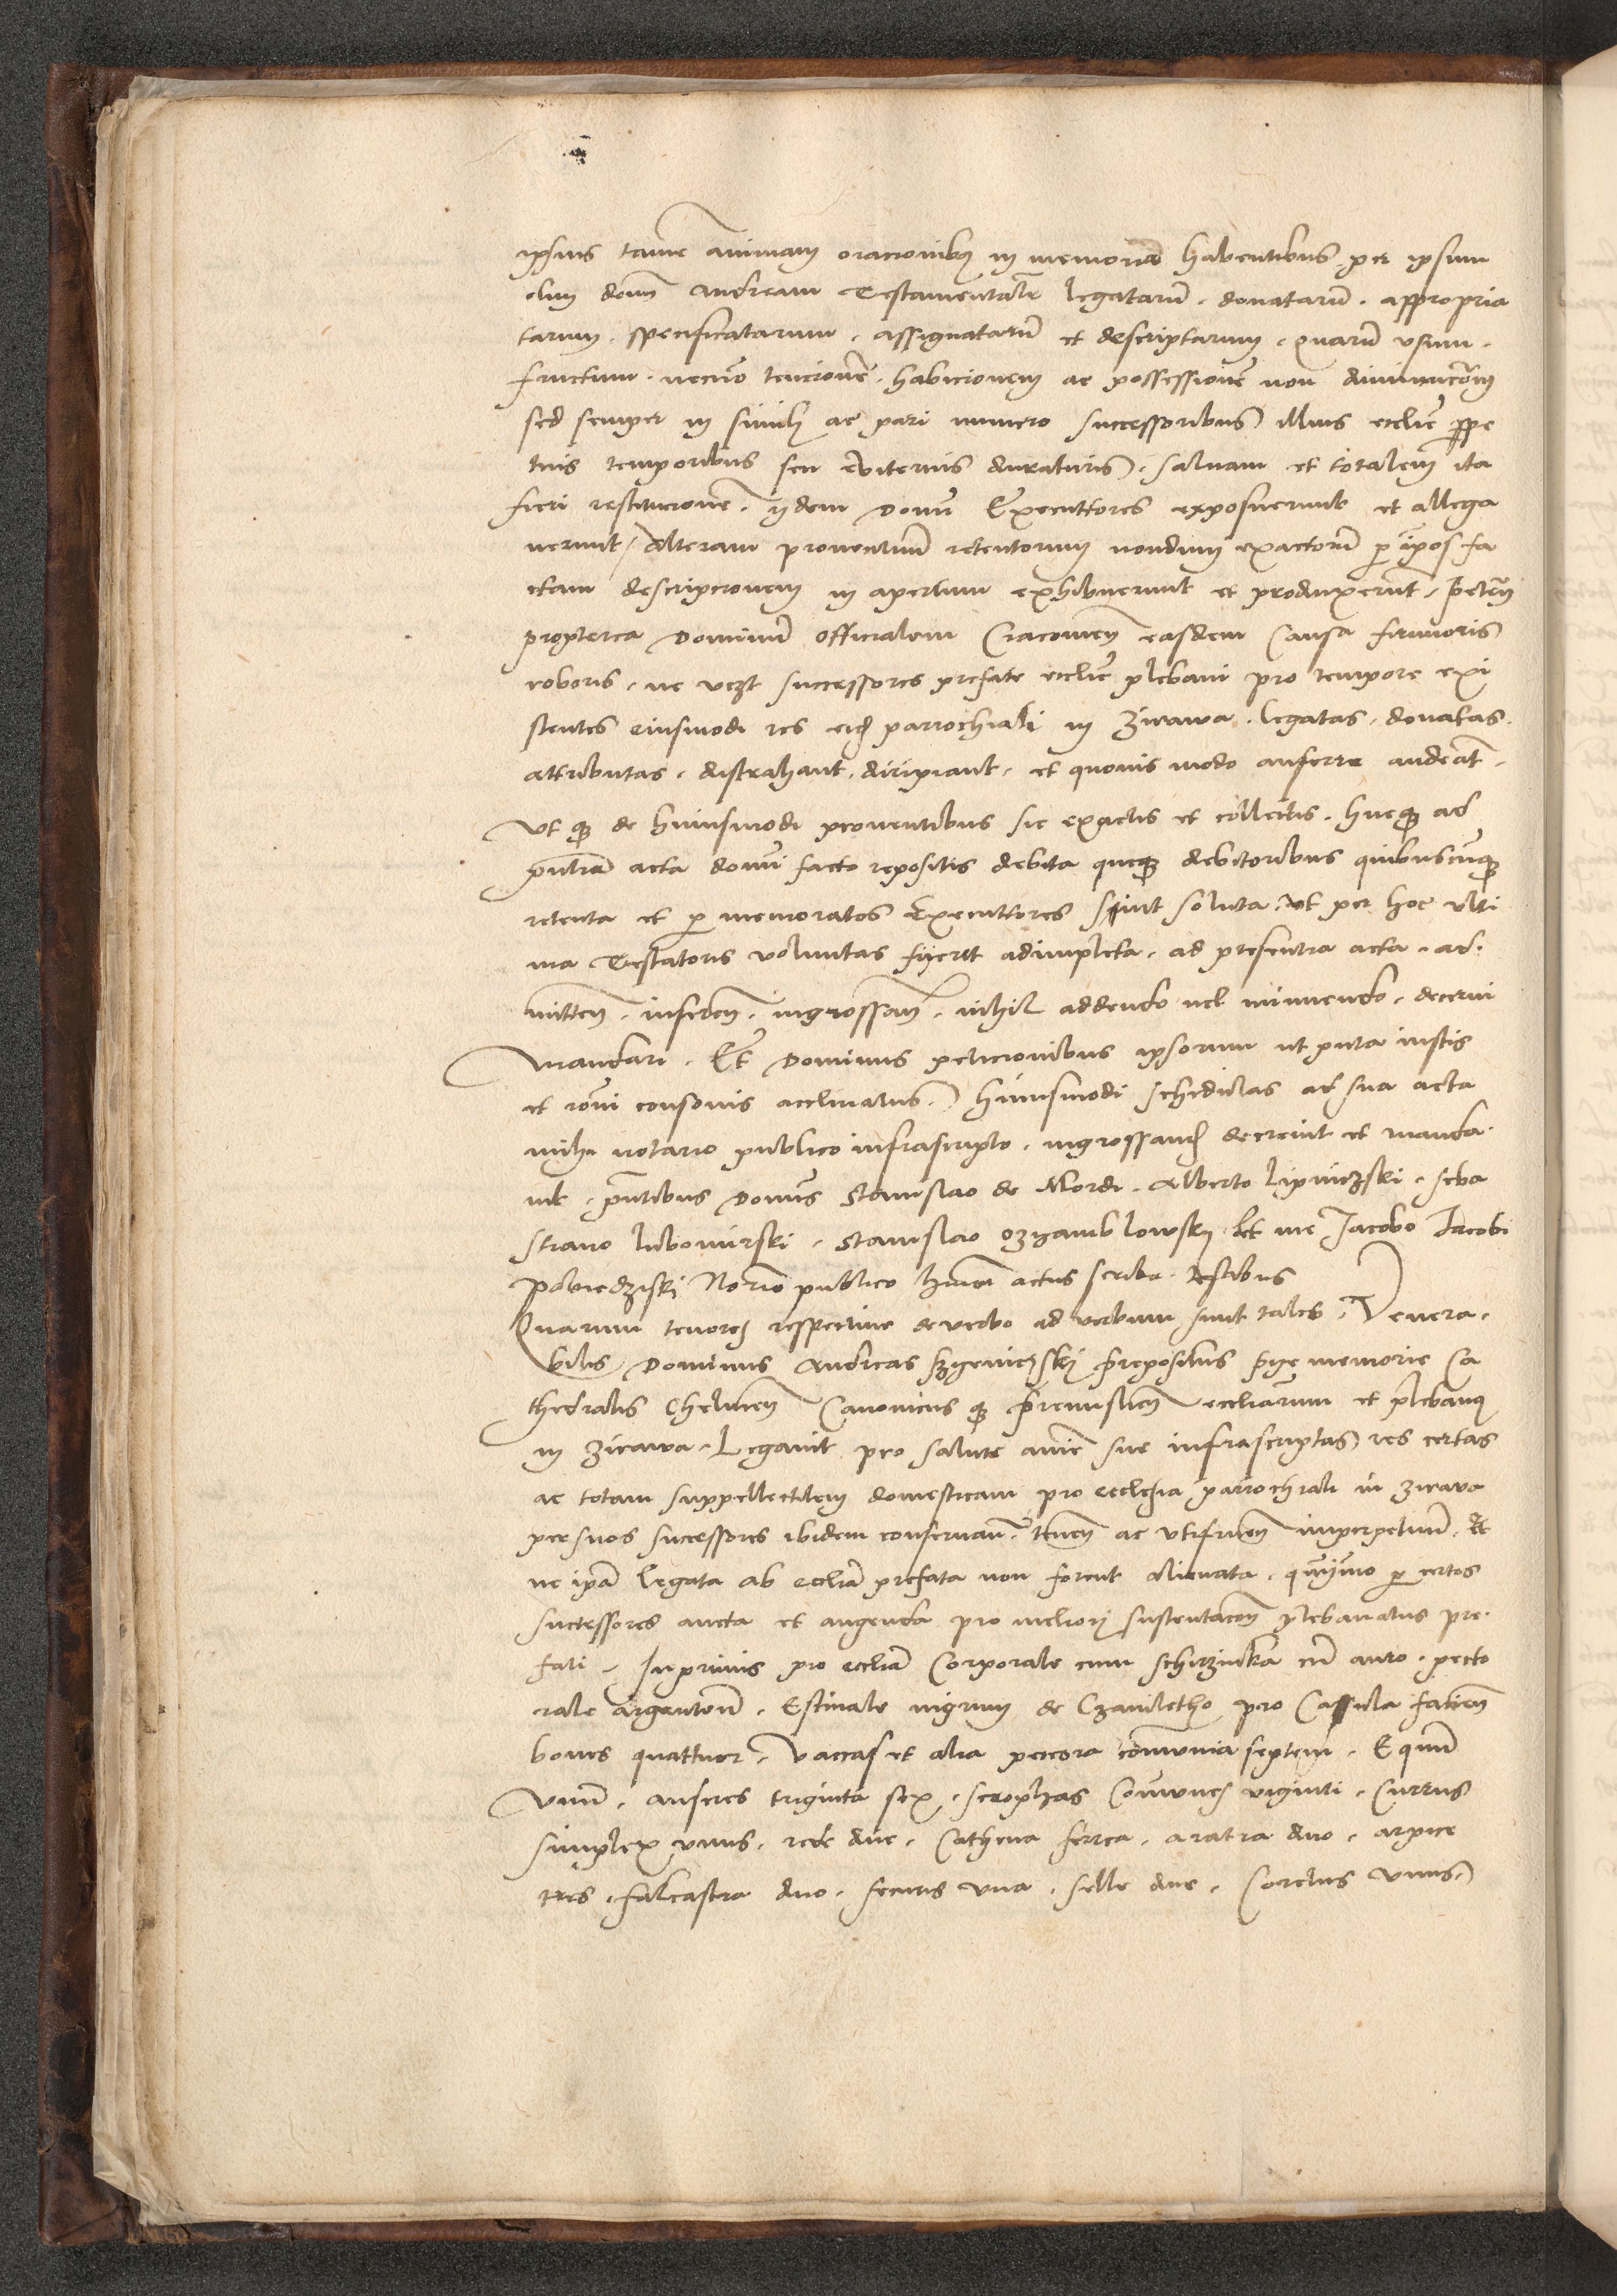 ipsius tamen animam oracionibus in memoria habentibus per ipsum
olim domi Andream testamentaliter legatarum . donatarum . appropria
tarum . specificatarum . assignatarum et descriptarum . quarum usum .
fructum . necnon tencionem . habicionem ac possessionem non diminucionem
sed semper in simili ac pari numero successoribus illius ecclie perpe
tuis temporibus seu eviternis duraturis . saluam et totalem ita
fieri restitucionem . ijdem Domini Executtores exposuerunt et allega
uerunt / Alteram prouentuum retentorum nondum exactorum per ipsos fa
ctam descripcionem in apertum exhibuerunt et produxerunt . peten
propterea Dominum Officialem Cracouien easdem Causa firmioris
roboris . ne vezt successores prefate ecclie plebani pro tempore exi
stentes eiusmodi res parrochiali in Zirawa . legatas . donatas .
attributas . distrahant . diripiant . et quouis modo auferre audeant .
Ut de huiusmodi prouentibus sic exactis et collectis . hucque ad
acta domini facto repositis debita queque debitoribus quibuscunque
retenta et per memoratos Executtores sint soluta . ut per hoc ulti
ma testatoris voluntas fuerit adimpleta . ad presentia acta . ad .
mitten . inseren . ingrossan . nihil addendo uel minuendo . decerni
mandari . Et Dominus peticionibus ipsorum utputa iustis
et roni consonis acclinatus . huiusmodi schedulas ad sua acta
mihi notario publico infrascripto . ingrossand decreuit et manda .
uit . pntibus Domnis Stanislao de Mordi . Alberto Lipniczski . Seba
stiano Lubomirski . Stanislao Ozyamblowsky . Et me Jacobo Jacobi
Pobiedziski Norio publico huiusmodi actus scriba . testibus
Quarum tenores respectiue de verbo ad verbum sunt tales . Venera .
bilis Dominus Andreas Prepositus pye memorie Ca
thedralis Chelmen Canonicus que Premislien eccliarum et plebanus
in Zirawa . Legauit pro salute anime sue infrascriptas res certas
ac totam suppellectilem domesticam pro ecclesia parrochiali in Zirawa
per suos successores ibidem conseruan . tenen ac utifruen imperpetuum . Et
ne ipa legata ab ecclia prefata non forent alienata . quinymo per certos
successores aucta et augenda pro meliori sustentacione plebanatus pre .
fati . Inprimis pro ecclia Corporale cum schirzinka cum auro . pecto
rale argenteum . Estiuale nigrum de Czamletho pro Casula facien
boues quattuor . vaccas et alia peccora communia septem . Equum
Unum . anseres triginta sex . scrophas Communes viginti . Currus
simplex vnus . rede due . Cathena ferrea . aratra duo . arpice
tres . falcastra duo . securis vna . selle due . Coretus vnus